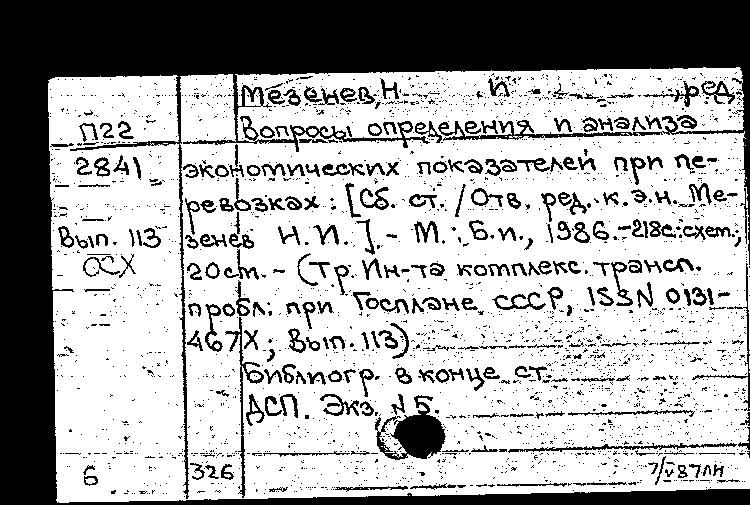 Мезенев, Н. И. , ред
П22 Вопросы определения и анализа
2841 экономических показателей при пе-
ревозках : [Сб. ст. / Отв. ред. к.э.н. Ме-
Вып. 113 зенев Н. И.]. - М. : Б.и., 1986. - 218с.: схем.;
ОСХ 20см. - (Тр. Ин-та комплекс. трансп.
пробл. при Госплане СССР, ISSN 0131-
467X; Вып. 113)
Библиогр. в конце ст.
ДСП. Экз. № 5.
6 326 7/V87ЛН